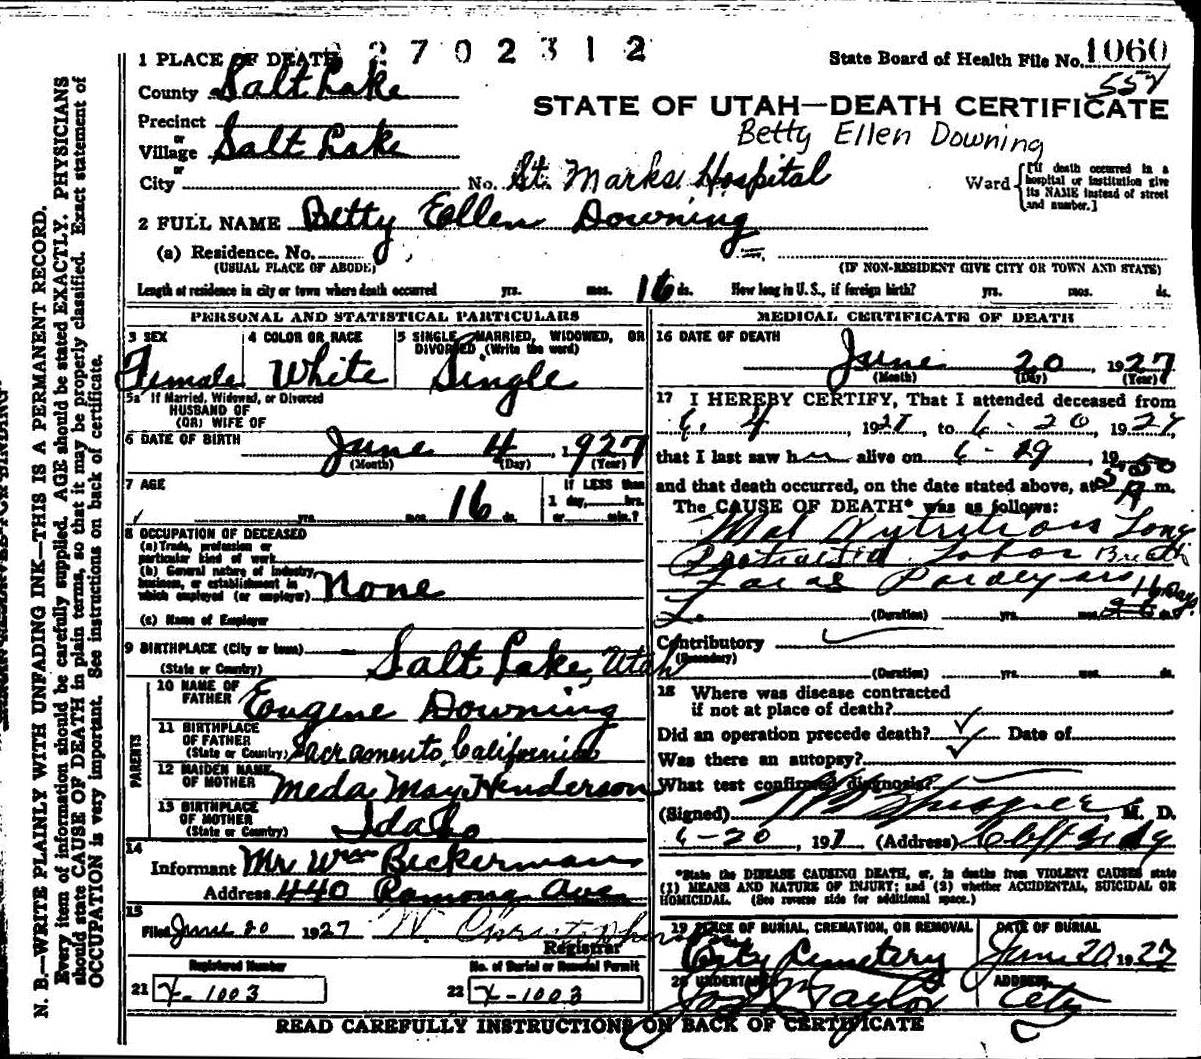 2702312
State Board of Health File No. 1060
557
1 PLACE OF DEATH
County Salt Lake
STATE OF UTAH—DEATH CERTIFICATE
Precinct
or
Village Salt Lake
Betty Ellen Downing
or
City No. St. Marks Hospital Ward
[If death occurred in a
hospital or institution give
its NAME instead of street
and number.]
2 FULL NAME Betty Ellen Downing
(a) Residence. No.
(USUAL PLACE OF ABODE) (IF NON-RESIDENT GIVE CITY OR TOWN AND STATE)
Length of residence in city or town where death occurred yrs. mos. 16 ds. How long in U. S., if foreign birth? yrs. mos. ds.
PERSONAL AND STATISTICAL PARTICULARS
3 SEX
Female
4 COLOR OR RACE
White
5 SINGLE, MARRIED, WIDOWED, OR
DIVORCED, (Write the word)
Single
5a If Married, Widowed, or Divorced
HUSBAND OF
(OR) WIFE OF
6 DATE OF BIRTH June 4, 1927
(Month) (Day) (Year)
7 AGE
yrs. mos. 16 ds.
If LESS than
1 day, hrs.
or min.?
8 OCCUPATION OF DECEASED
(a) Trade, profession or
particular kind of work
(b) General nature of industry,
business, or establishment in
which employed (or employer) None
(c) Name of Employer
9 BIRTHPLACE (City or town)
(State or Country) Salt Lake, Utah
PARENTS
10 NAME OF
FATHER Eugene Downing
11 BIRTHPLACE
OF FATHER
(State or Country) Sacramento, California
12 MAIDEN NAME
OF MOTHER Meda May Henderson
13 BIRTHPLACE
OF MOTHER
(State or Country) Idaho
14
Informant Mr Wm Beckerman
Address 440 Ramona Ave
15
Filed June 20 1927
Registrar
Registered Number
21 X-1003
No. of Burial or Removal Permit
22 X-1003
MEDICAL CERTIFICATE OF DEATH
16 DATE OF DEATH
June 20, 1927
(Month) (Day) (Year)
17 I HEREBY CERTIFY, That I attended deceased from
6. 4, 1927, to 6-20, 1927
that I last saw her alive on 6-19, 19
and that death occurred, on the date stated above, at 5:50 A m.
The CAUSE OF DEATH* was as follows:
Mal Nutrition Long
Protracted Labor
16 Days
(Duration) yrs. mos. ds.
Contributory
(Secondary)
(Duration) yrs. mos. ds.
18 Where was disease contracted
if not at place of death?
Did an operation precede death? Date of
Was there an autopsy?
What test confirmed diagnosis?
(Signed) M. D.
6-20, 191 (Address)
*State the DISEASE CAUSING DEATH, or, in deaths from VIOLENT CAUSES state
(1) MEANS AND NATURE OF INJURY; and (2) whether ACCIDENTAL, SUICIDAL OR
HOMICIDAL. (See reverse side for additional space.)
19 PLACE OF BURIAL, CREMATION, OR REMOVAL
City Cemetery
DATE OF BURIAL
June 20 1927
20 UNDERTAKER
Taylor
ADDRESS
City
READ CAREFULLY INSTRUCTIONS ON BACK OF CERTIFICATE
N. B.—WRITE PLAINLY WITH UNFADING INK—THIS IS A PERMANENT RECORD.
Every item of information should be carefully supplied. AGE should be stated EXACTLY. PHYSICIANS
should state CAUSE OF DEATH in plain terms, so that it may be properly classified. Exact statement of
OCCUPATION is very important. See instructions on back of certificate.